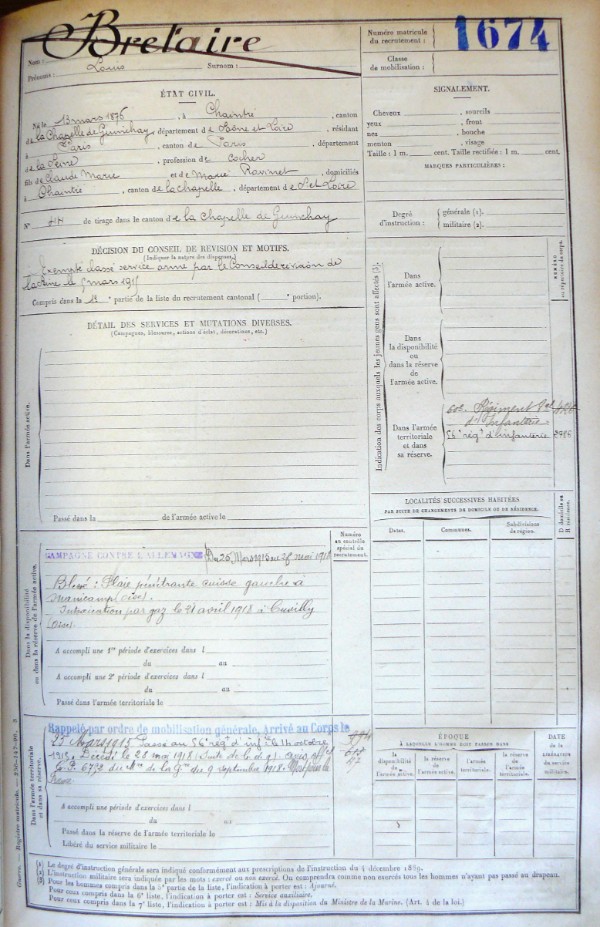 Bretaire
Nom :
Prénoms : Louis Surnom :
Numéro matricule
du recrutement :
1674
Classe
de mobilisation :
ÉTAT CIVIL.
Né le 13 mars 1875, à Chaintré, canton
de la Chapelle de Guinchay, département de Saône et Loire, résidant
à Paris, canton de Paris, département
de la Seine, profession de Cocher
fils de Claude Marie et de Marie Ravinet, domiciliés
à Chaintré, canton de la Chapelle, département de S et Loire
N° de tirage dans le canton de la Chapelle de Guinchay
SIGNALEMENT.
Cheveux , sourcils
yeux , front
nez , bouche
menton , visage
Taille : 1 m. cent. Taille rectifiée : 1 m. cent.
MARQUES PARTICULIÈRES :
Degré
d'instruction :
générale (1).
militaire (2).
DÉCISION DU CONSEIL DE RÉVISION ET MOTIFS.
(Indiquer la nature des dispenses.)
Exempté classé service armé par le Conseil de révision de
la Seine le mars 1915
Compris dans la partie de la liste du recrutement cantonal ( portion).
DÉTAIL DES SERVICES ET MUTATIONS DIVERSES.
(Campagnes, blessures, actions d'éclat, décorations, etc.)
Dans l'armée active.
Passé dans la de l'armée active le
Indication des corps auxquels les jeunes gens sont affectés (3).
NUMÉRO
Dans
l'armée active.
Dans
la disponibilité
ou
dans la réserve
de
l'armée active.
Dans l'armée
territoriale
et dans
sa réserve.
60e Régiment
d'Infanterie
56e rég d'infanterie
LOCALITÉS SUCCESSIVES HABITÉES
PAR SUITE DE CHANGEMENTS DE DOMICILE OU DE RÉSIDENCE.
Dates.
Communes.
Subdivisions
de région.
D domicile ou
R résidence.
Dans la disponibilité
ou dans la réserve de l'armée active.
CAMPAGNE CONTRE L'ALLEMAGNE Du 25 Mars 1915 au 28 mai 1918
Numéro
au contrôle
spécial du
recrutement.
Blessé : Plaie pénétrante cuisse gauche à
Manicamp (Oise).
Intoxication par gaz le 21 avril 1918 à Cuvilly
(Oise).
A accompli une 1re période d'exercices dans l
du au
A accompli une 2e période d'exercices dans l
du au
Passé dans l'armée territoriale le
Dans l'armée territoriale
et dans sa réserve.
Rappelé par ordre de mobilisation générale, Arrivé au Corps le
25 Mars 1915 Passé au 56e rég d'inf le 14 octobre
1915. Décédé le 28 mai 1918 (suite de bl. de g.)
du Mre de la Gre du 9 septembre 1918. Mort pour la
France
A accompli une période d'exercices dans l
du au
Passé dans la réserve de l'armée territoriale le
Libéré du service militaire le
ÉPOQUE
À LAQUELLE L'HOMME DOIT PASSER DANS
la
disponibilité
de
l'armée active.
la réserve
de
l'armée active.
l'armée
territoriale.
la réserve
de
l'armée
territoriale.
DATE
de la
LIBÉRATION
du service
militaire.
(1) Le degré d'instruction générale sera indiqué conformément aux prescriptions de l'instruction du 4 décembre 1889.
(2) L'instruction militaire sera indiquée par les mots : exercé ou non exercé. On comprendra comme non exercés tous les hommes n'ayant pas passé au drapeau.
(3) Pour les hommes compris dans la 5e partie de la liste, l'indication à porter est : Ajourné.
Pour ceux compris dans la 6e liste, l'indication à porter est : Service auxiliaire.
Pour ceux compris dans la 7e liste, l'indication à porter est : Mis à la disposition du Ministre de la Marine. (Art. 4 de la loi.)